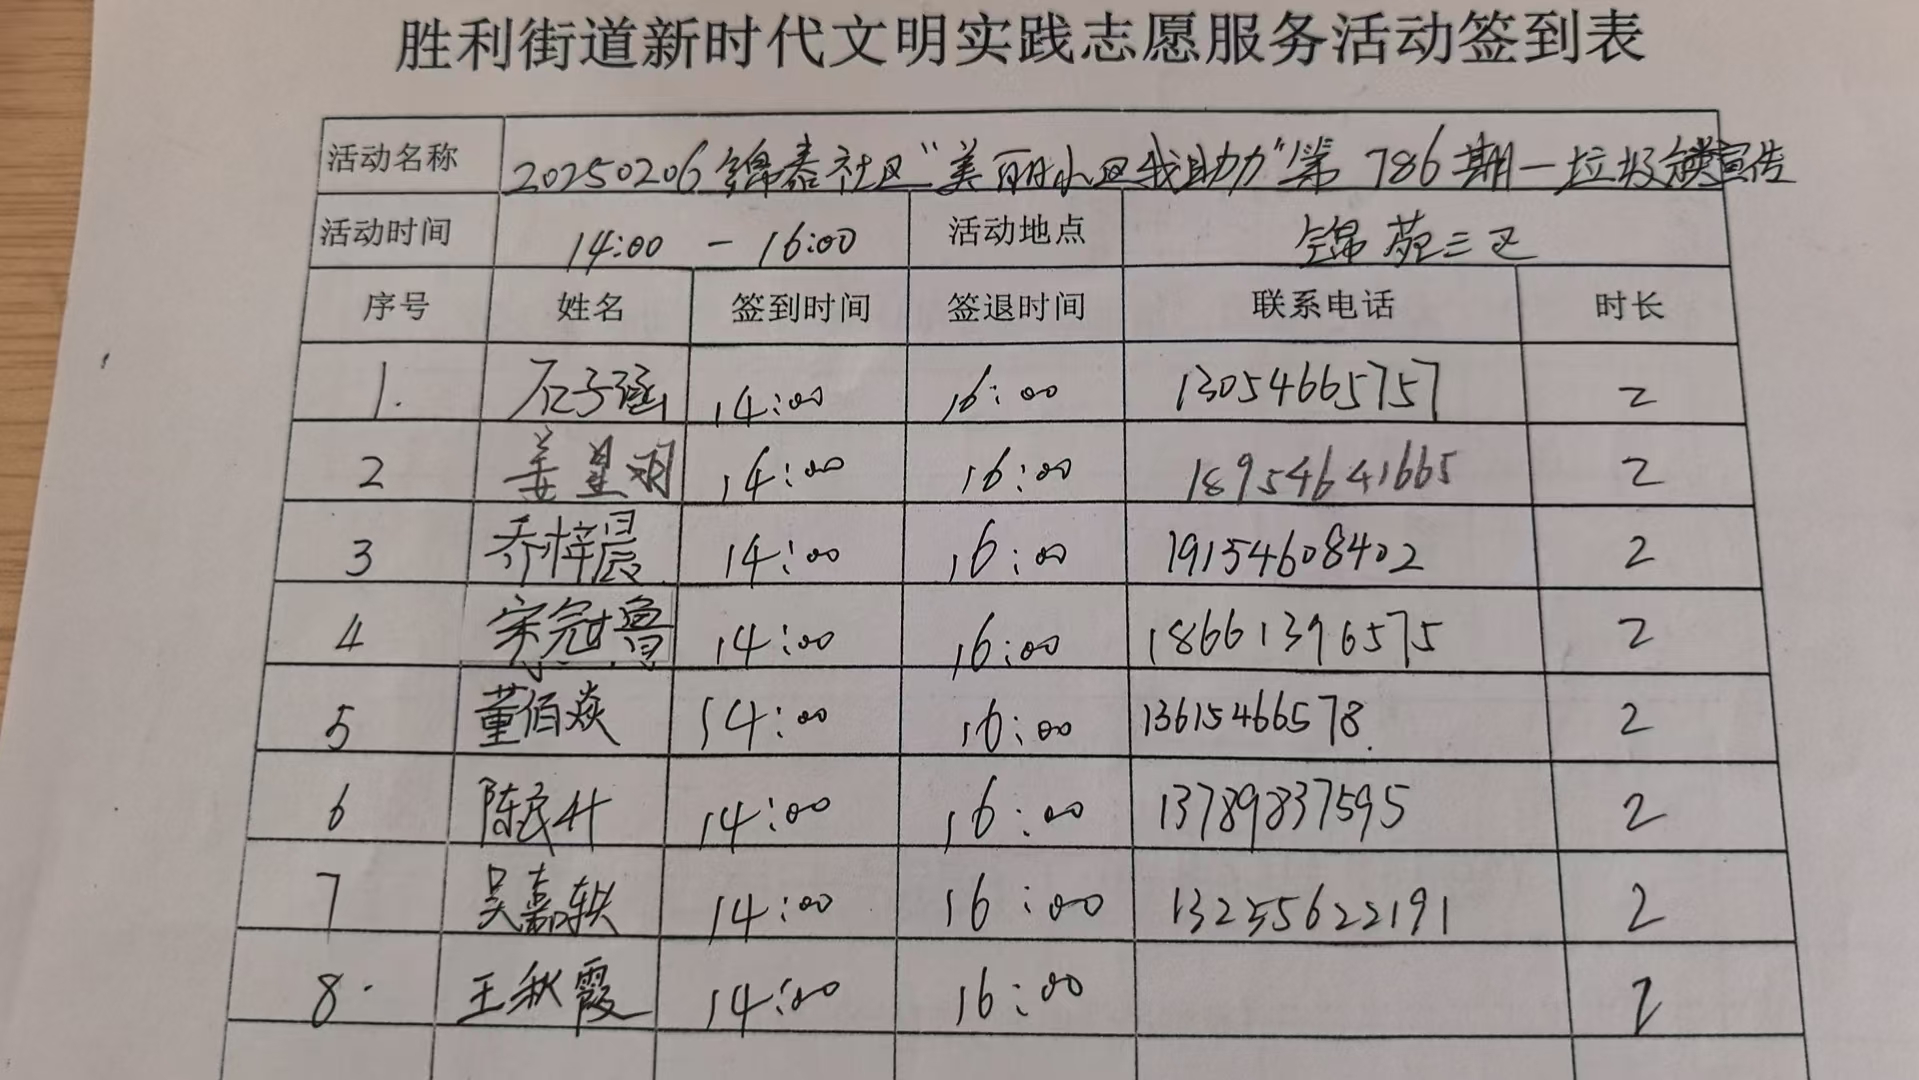 胜利街道新时代文明实践志愿服务活动签到表
活动名称 20250206锦泰社区“美丽小区我助力”第786期—垃圾分类宣传
活动时间 14:00 - 16:00 活动地点 锦苑三区
序号 姓名 签到时间 签退时间 联系电话 时长
1. 石子涵 14:00 16:00 13054665757 2
2 姜星羽 14:00 16:00 18954641665 2
3 乔梓晨 14:00 16:00 19154608402 2
4 宋冠鲁 14:00 16:00 18661396575 2
5 董佰焱 14:00 16:00 13615466578. 2
6 陈民升 14:00 16:00 13789837595 2
7 吴嘉轶 14:00 16:00 13255622191 2
8. 王秋霞 14:00 16:00 2